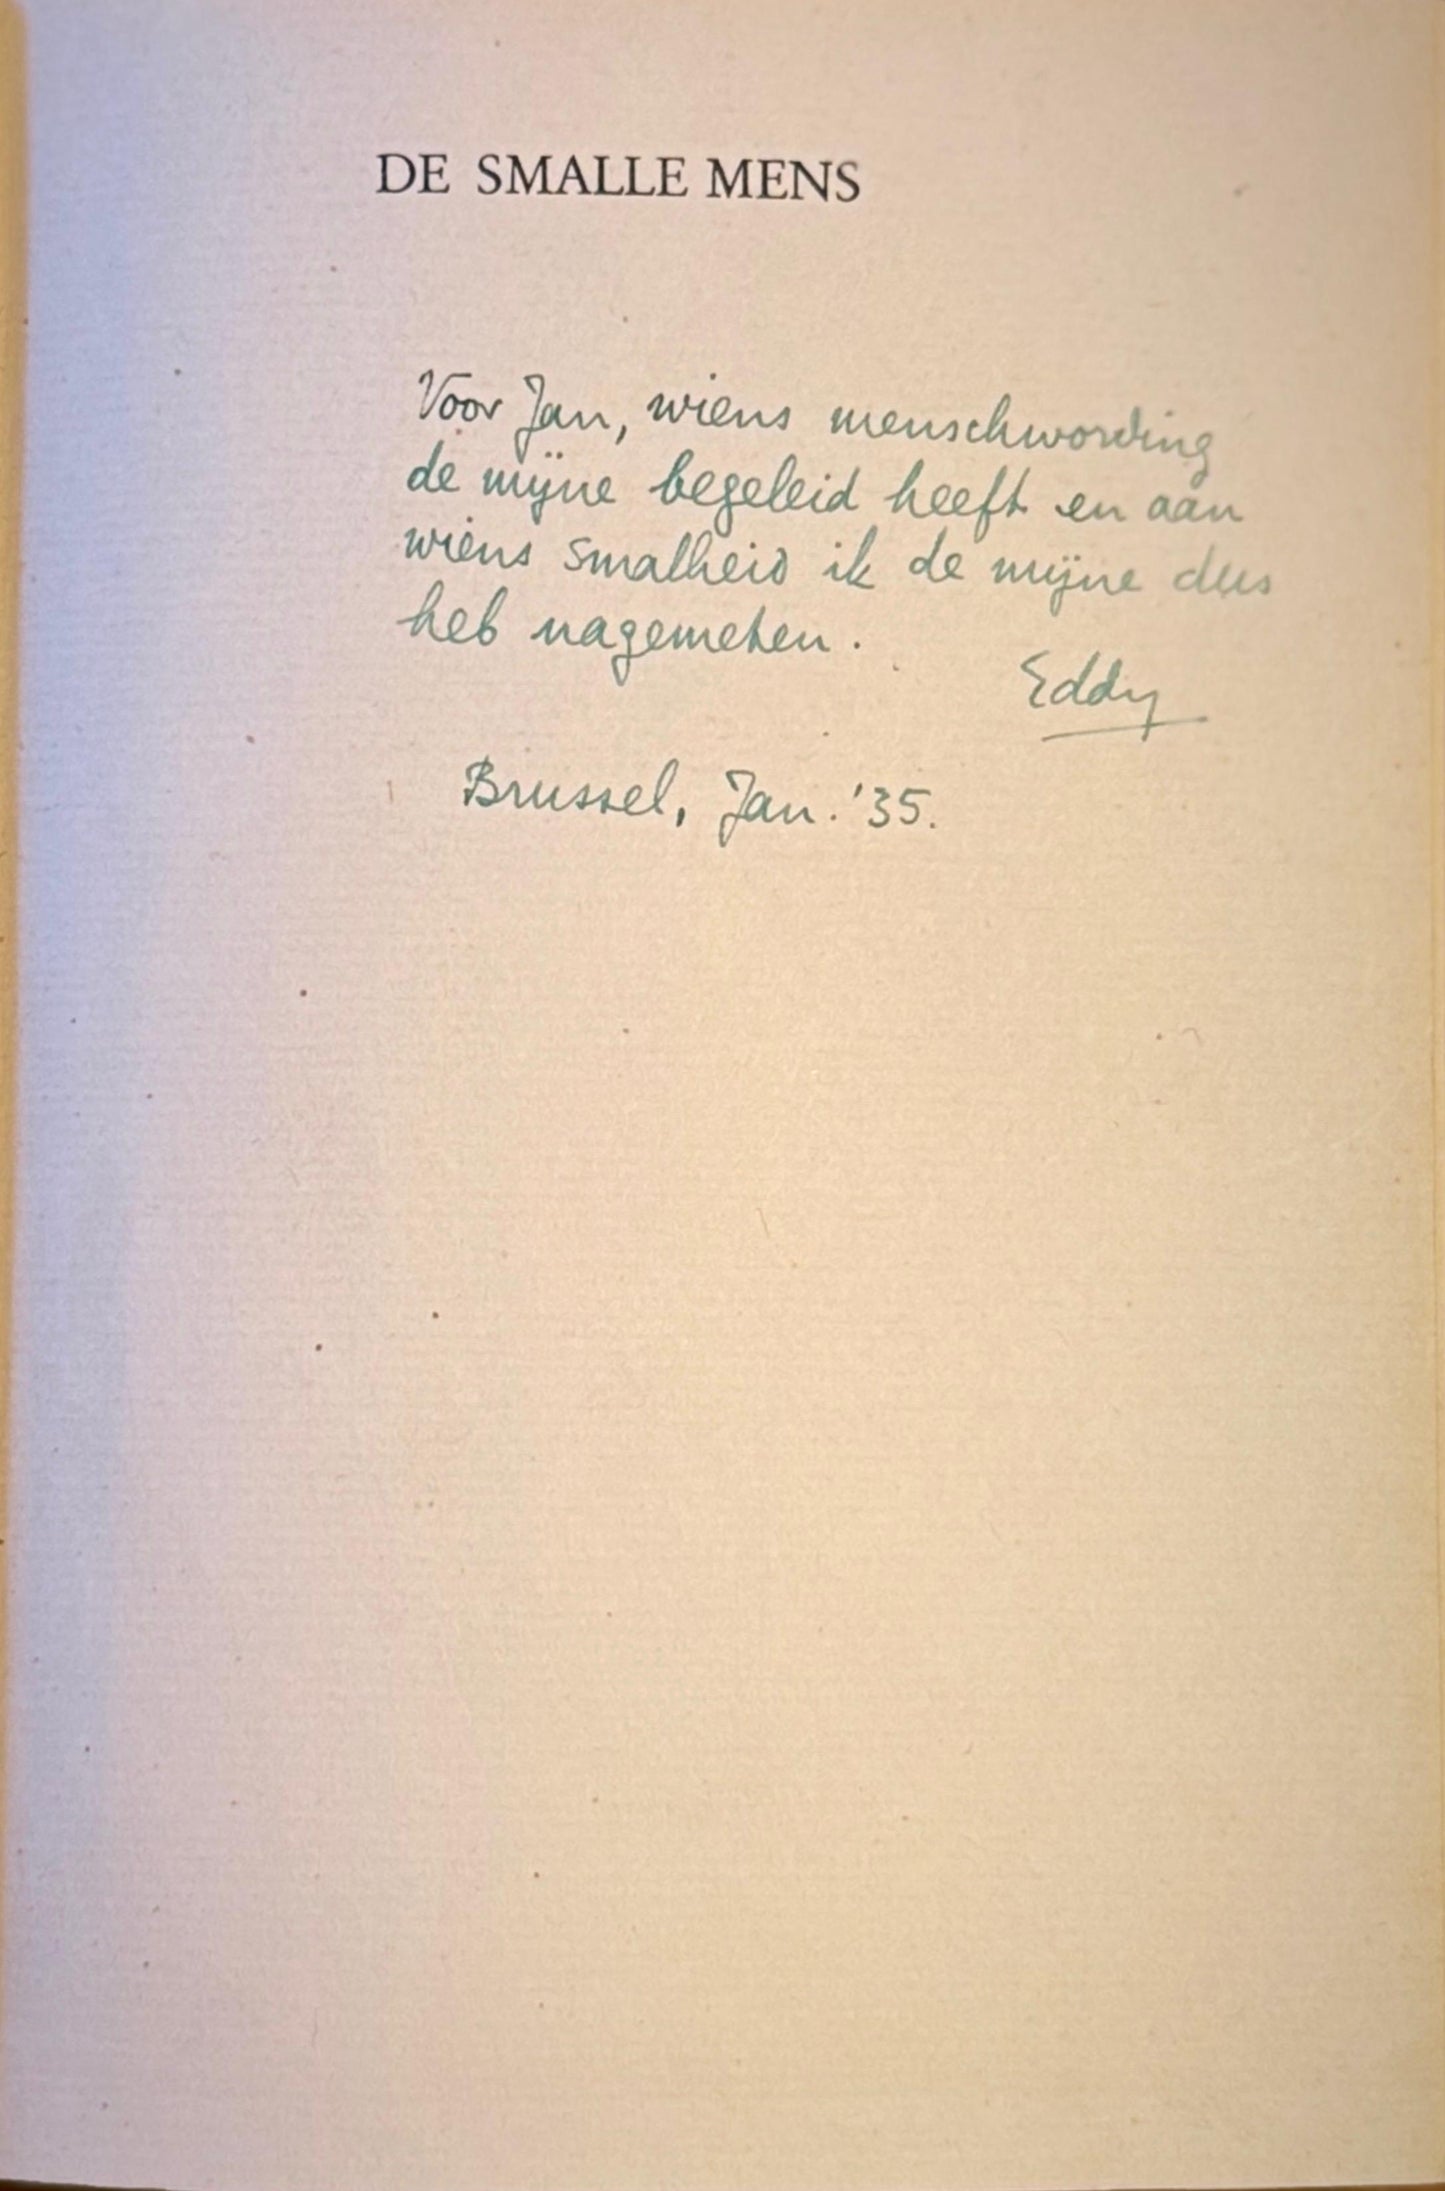 DE SMALLE MENS
Voor Jan, wiens menschwording
de mijne begeleid heeft en aan
wiens smalheid ik de mijne dus
heb nagemeten.
Eddy
Brussel, Jan. '35.